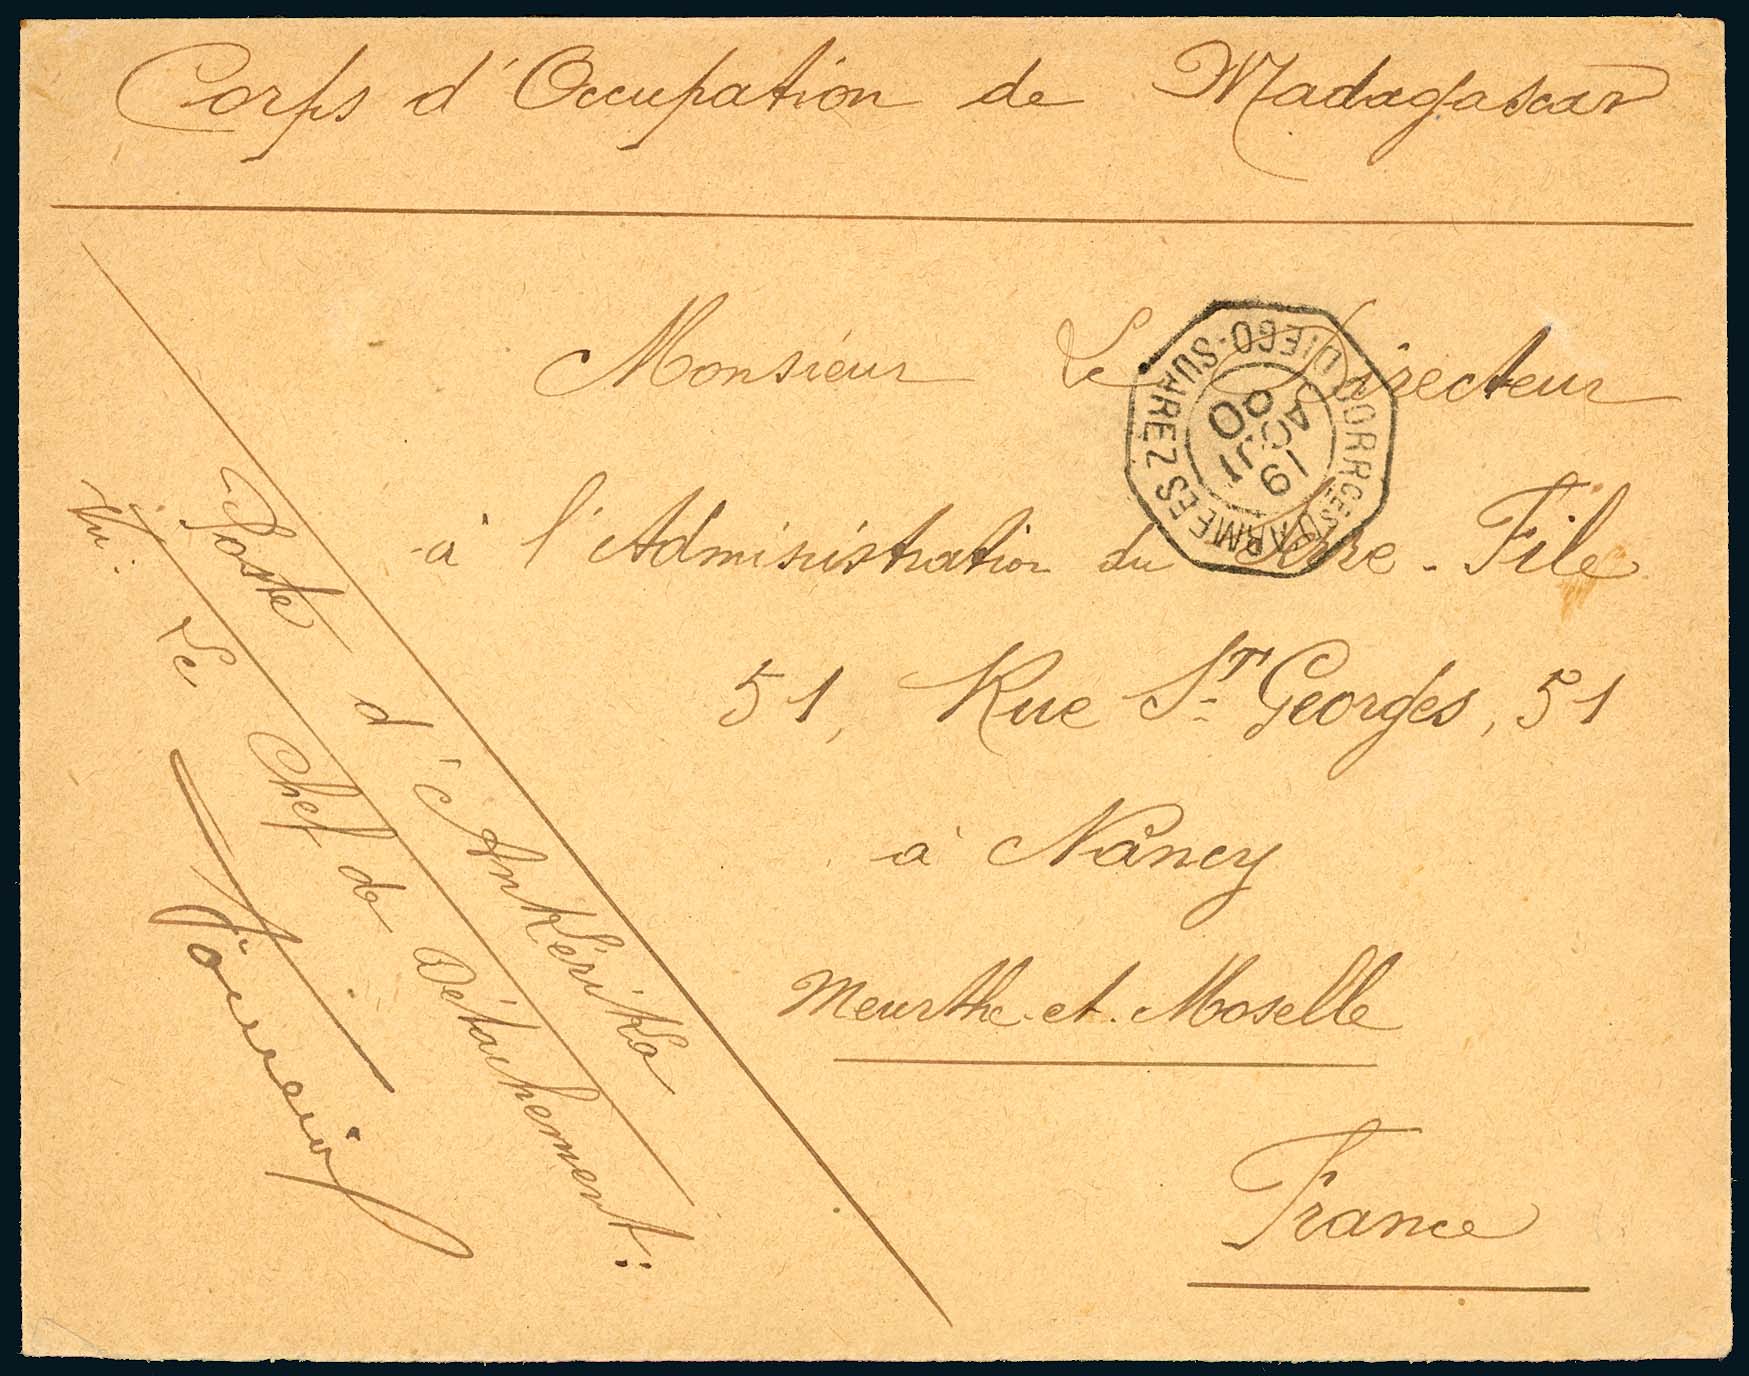 Corps d'Occupation de Madagascar
Monsieur Le Directeur
à l'Administration du Serre-File
51, Rue St Georges, 51
à Nancy
Meurthe-et-Moselle
France
CORR.CES D'ARMEES DIEGO-SUAREZ
19
AOUT
00
Poste d'Ankériko
Vu:
Le Chef de Détachement: